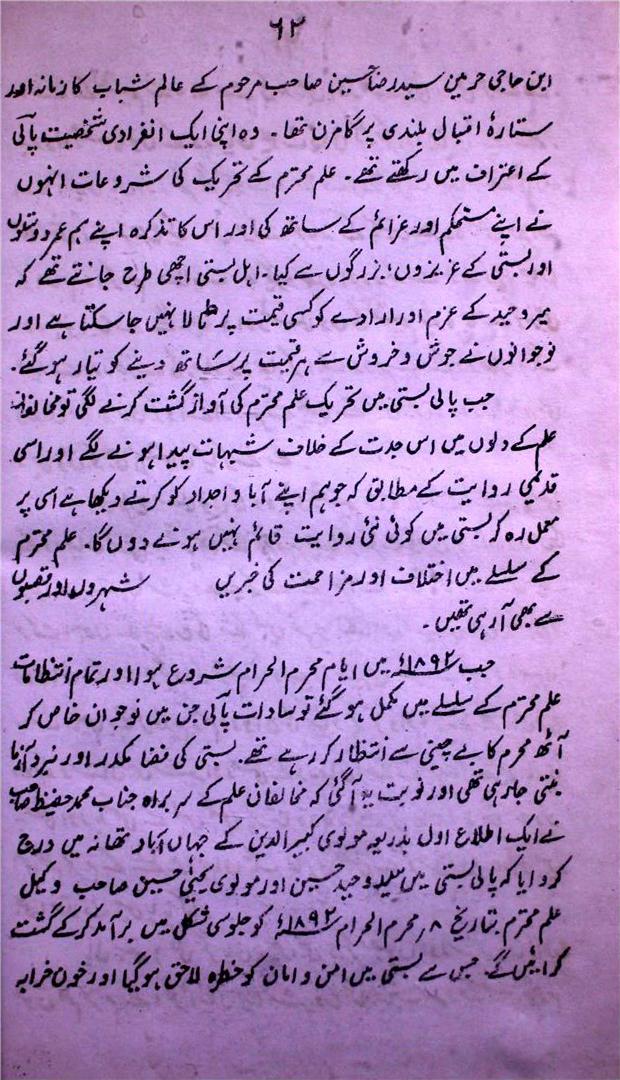 ۶۲
ابن حاجی حرمین سید رضا حسین صاحب مرحوم کے عالم شباب کا زمانہ اور
ستارۂ اقبال بلندی پر گامزن تھا۔ وہ اپنی ایک انفرادی شخصیت پالی
کے اعتراف میں رکھتے تھے۔ علم محترم کے تحریک کی شروعات انہوں
نے اپنے مستحکم اور عزائم کے ساتھ کی اور اس کا تذکرہ اپنے ہم عمر دوستوں
اور بستی کے عزیزوں، بزرگوں سے کیا۔ اہل بستی اچھی طرح جانتے تھے کہ
میر وحید کے عزم اور ارادے کو کسی قیمت پر ٹالا نہیں جا سکتا ہے اور
نوجوانوں نے جوش و خروش سے ہر قیمت پر ساتھ دینے کو تیار ہو گئے۔
جب پالی بستی میں تحریک علم محترم کی آواز گشت کرنے لگی تو مخالفان
علم کے دلوں میں اس جدت کے خلاف شبہات پیدا ہونے لگے اور اسی
قدیمی روایت کے مطابق کہ جو ہم اپنے آبا و اجداد کو کرتے دیکھا ہے اسی پر
عمل رہ کر بستی میں کوئی نئی روایت قائم نہیں ہونے دوں گا۔ علم محترم
کے سلسلے میں اختلاف اور مزاحمت کی خبریں شہروں اور قصبوں
سے بھی آ رہی تھیں۔
جب ۱۸۹۲ء میں ایام محرم الحرام شروع ہوا اور تمام انتظامات
علم محترم کے سلسلے میں مکمل ہو گئے تو سادات پالی جن میں نوجوان خاص کر
آٹھ محرم کا بے چینی سے انتظار کر رہے تھے۔ بستی کی فضا مکدر اور نبرد آزما
بنتی جا رہی تھی اور نوبت یہ آ گئی کہ مخالفان علم کے سربراہ جناب محمد حفیظ صاحب
نے ایک اطلاع اول بذریعہ مولوی کبیر الدین کے جہاں آباد تھانہ میں درج
کروایا کہ پالی بستی میں سید وحید حسین اور مولوی یحییٰ حسین صاحب وکیل
علم محترم بتاریخ ۸ محرم الحرام ۱۸۹۲ء کو جلوسی شکل میں برآمد کر کے گشت
کرائیں گے جس سے بستی میں امن و امان کو خطرہ لاحق ہو گیا اور خون خرابہ